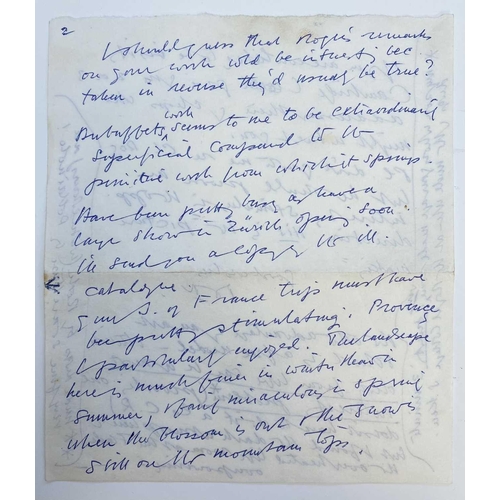 2
I should guess that Roge's remarks
on your work cold be insuestg bec
taken in reverse they'd usually be true?
work
Dubuffets, seems to me to be extraordinarily
superficial compared to the
primitive work from which it springs.
Have been pretty busy as have a
large show in Zürich opening soon.
I'll send you a copy of the ill.
catalogue
Your S. of France trip must have
been pretty stimulating. Provence
I particularly enjoyed. The landscape
here is much finer in winter than in
summer, & miraculous in spring
when the blossom is out & the snow is
still on the mountain tops.